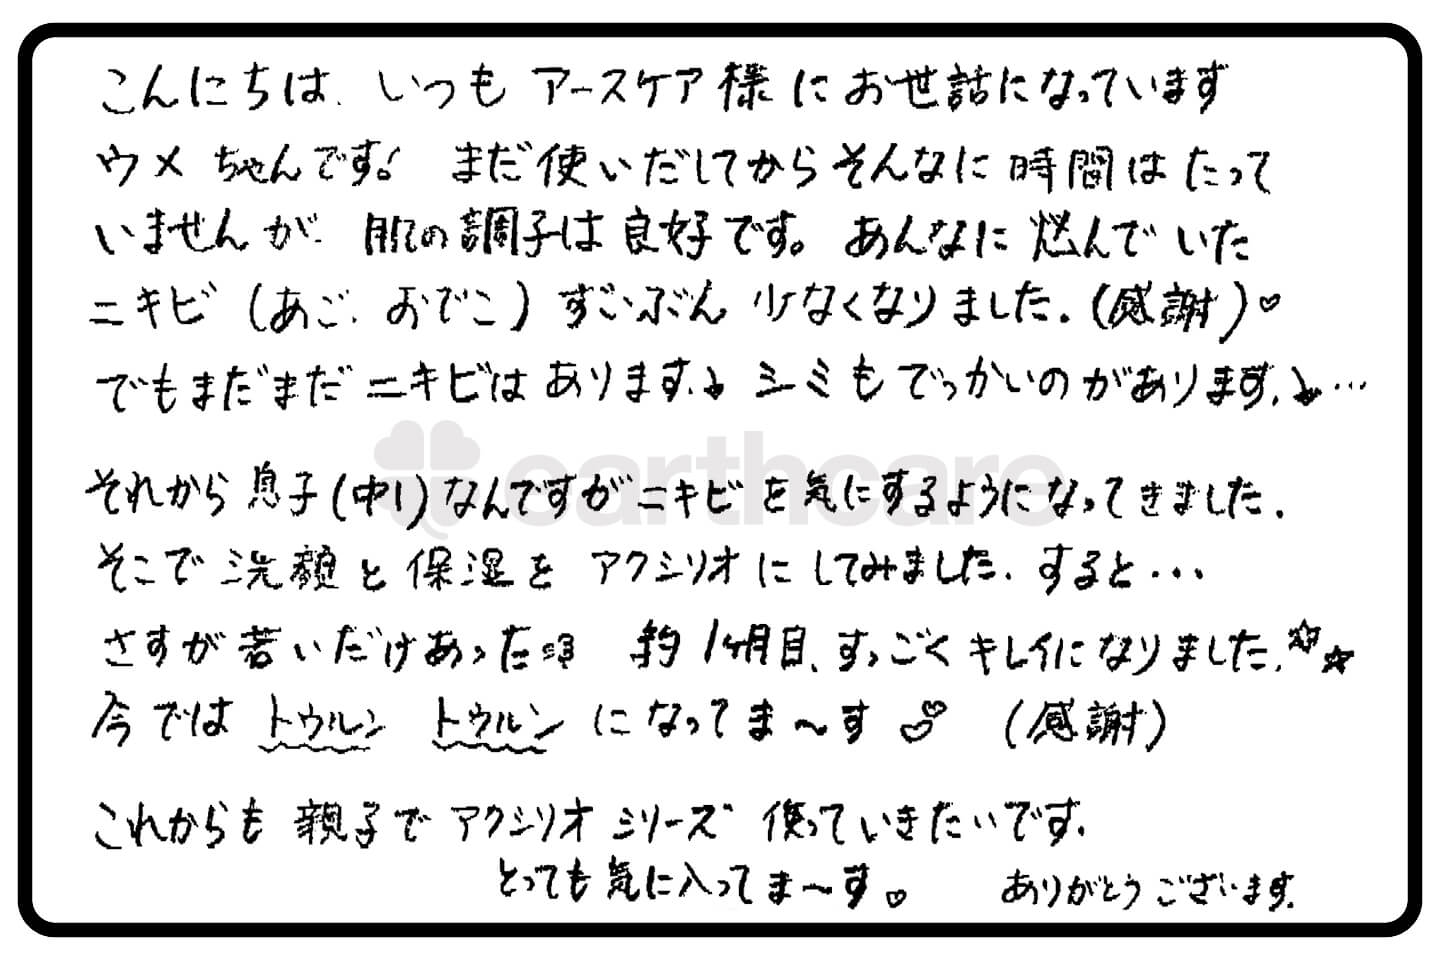 こんにちは、いつも アースケア様にお世話になっています
ウメ ちゃんです! まだ使いだしてからそんなに時間はたって
いませんが、肌の調子は良好です。あんなに悩んでいた
ニキビ (あご、おでこ) すごいぶん 少なくなりました.(感謝)♡
でもまだまだニキビはあります、シミもでっかいのがあります、…
それから息子(中1)なんですがニキビを気にするようになってきました.
そこで洗顔と保湿を アクシリオにしてみました、すると・・・
さすが若いだけあった 約1ヶ月目、すっごくキレイになりました.☆☆
今では トゥルン トゥルン になってま〜す♡ (感謝)
これからも 親子で アクシリオ シリーズ 使っていきたいです.
とっても気に入ってま〜す。♡ ありがとうございます.
earthcare